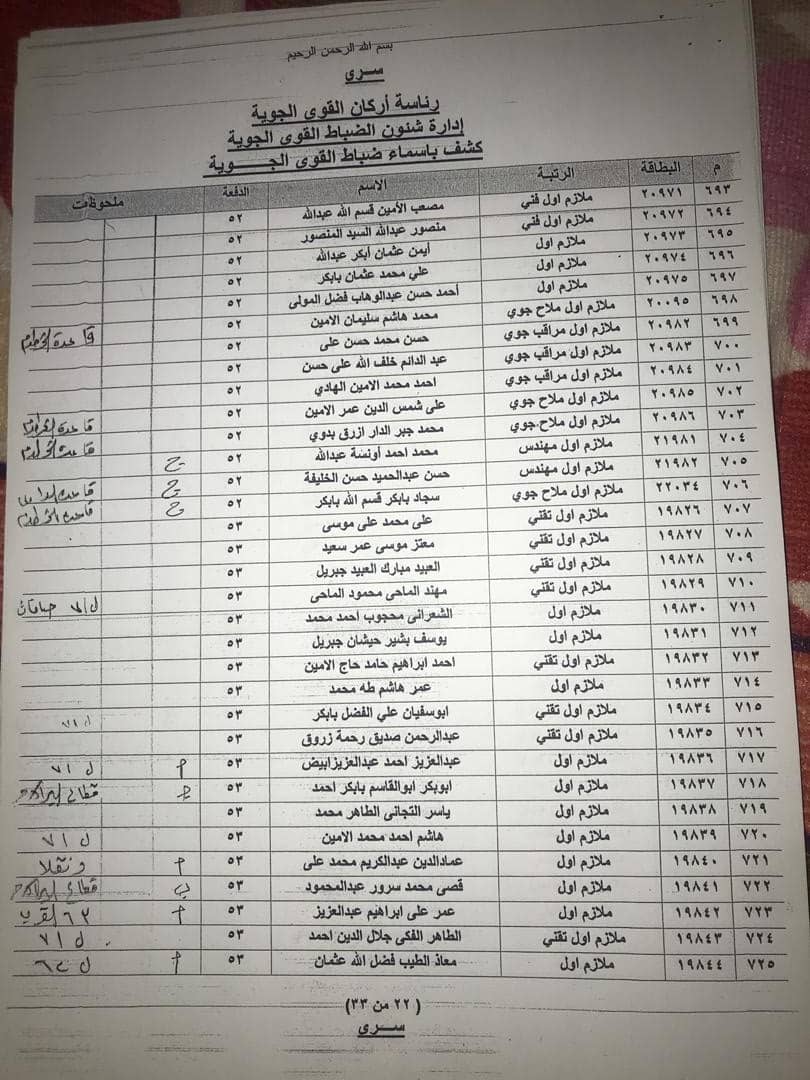 بسم الله الرحمن الرحيم
سرى
رئاسة أركان القوى الجوية
إدارة شئون الضباط القوى الجوية
كشف باسماء ضباط القوى الجوية
م البطاقة الرتبة الاسم الدفعة ملحوظات
٦٩٣ ٢٠٩٧١ ملازم اول فني مصعب الأمين قسم الله عبدالله ٥٢
٦٩٤ ٢٠٩٧٢ ملازم اول فني منصور عبدالله السيد المنصور ٥٢
٦٩٥ ٢٠٩٧٣ ملازم اول أيمن عثمان أبكر عبدالله ٥٢
٦٩٦ ٢٠٩٧٤ ملازم اول علي محمد عثمان بابكر ٥٢
٦٩٧ ٢٠٩٧٥ ملازم اول أحمد حسن عبدالوهاب فضل المولى ٥٢
٦٩٨ ٢٠٠٩٥ ملازم اول ملاح جوي محمد هاشم سليمان الامين ٥٢
٦٩٩ ٢٠٩٨٢ ملازم اول مراقب جوي حسن محمد حسن على ٥٢ قاعدة
٧٠٠ ٢٠٩٨٣ ملازم اول مراقب جوي عبد الدائم خلف الله على حسن ٥٢
٧٠١ ٢٠٩٨٤ ملازم اول مراقب جوي احمد محمد الامين الهادي ٥٢
٧٠٢ ٢٠٩٨٥ ملازم اول ملاح جوي على شمس الدين عمر الامين ٥٢
٧٠٣ ٢٠٩٨٦ ملازم اول ملاح جوي محمد جبر الدار ازرق بدوي ٥٢ قاعدة
٧٠٤ ٢١٩٨١ ملازم اول مهندس محمد احمد أونسة عبدالله ٥٢ ج قاعدة
٧٠٥ ٢١٩٨٢ ملازم اول مهندس حسن عبدالحميد حسن الخليفة ٥٢ ج قاعدة
٧٠٦ ٢٢٠٣٤ ملازم اول ملاح جوي سجاد بابكر قسم الله بابكر ٥٢ ج قاعدة
٧٠٧ ١٩٨٢٦ ملازم اول تقني على محمد على موسى ٥٣
٧٠٨ ١٩٨٢٧ ملازم اول تقني معتز موسى عمر سعيد ٥٣
٧٠٩ ١٩٨٢٨ ملازم اول تقني العبيد مبارك العبيد جبريل ٥٣
٧١٠ ١٩٨٢٩ ملازم اول تقني مهند الماحى محمود الماحى ٥٣
٧١١ ١٩٨٣٠ ملازم اول الشعرانى محجوب احمد محمد ٥٣
٧١٢ ١٩٨٣١ ملازم اول يوسف بشير حيشان جبريل ٥٣
٧١٣ ١٩٨٣٢ ملازم اول تقني احمد ابراهيم حامد حاج الامين ٥٣
٧١٤ ١٩٨٣٣ ملازم اول عمر هاشم طه محمد ٥٣
٧١٥ ١٩٨٣٤ ملازم اول تقني ابوسفيان علي الفضل بابكر ٥٣ ل ٧١
٧١٦ ١٩٨٣٥ ملازم اول تقني عبدالرحمن صديق رحمة زروق ٥٣
٧١٧ ١٩٨٣٦ ملازم اول عبدالعزيز احمد عبدالعزيزابيض ٥٣ م ل ٧١
٧١٨ ١٩٨٣٧ ملازم اول ابوبكر ابوالقاسم بابكر احمد ٥٣
٧١٩ ١٩٨٣٨ ملازم اول ياسر التجانى الطاهر محمد ٥٣
٧٢٠ ١٩٨٣٩ ملازم اول هاشم احمد محمد الامين ٥٣ ل ٧١
٧٢١ ١٩٨٤٠ ملازم اول عمادالدين عبدالكريم محمد على ٥٣ م دنقلا
٧٢٢ ١٩٨٤١ ملازم اول قصى محمد سرور عبدالمحمود ٥٣ ب
٧٢٣ ١٩٨٤٢ ملازم اول عمر على ابراهيم عبدالعزيز ٥٣ م
٧٢٤ ١٩٨٤٣ ملازم اول تقني الطاهر الفكى جلال الدين احمد ٥٣ ل ٧١
٧٢٥ ١٩٨٤٤ ملازم اول معاذ الطيب فضل الله عثمان ٥٣ م
( ٢٢ من ٣٣)
سرى